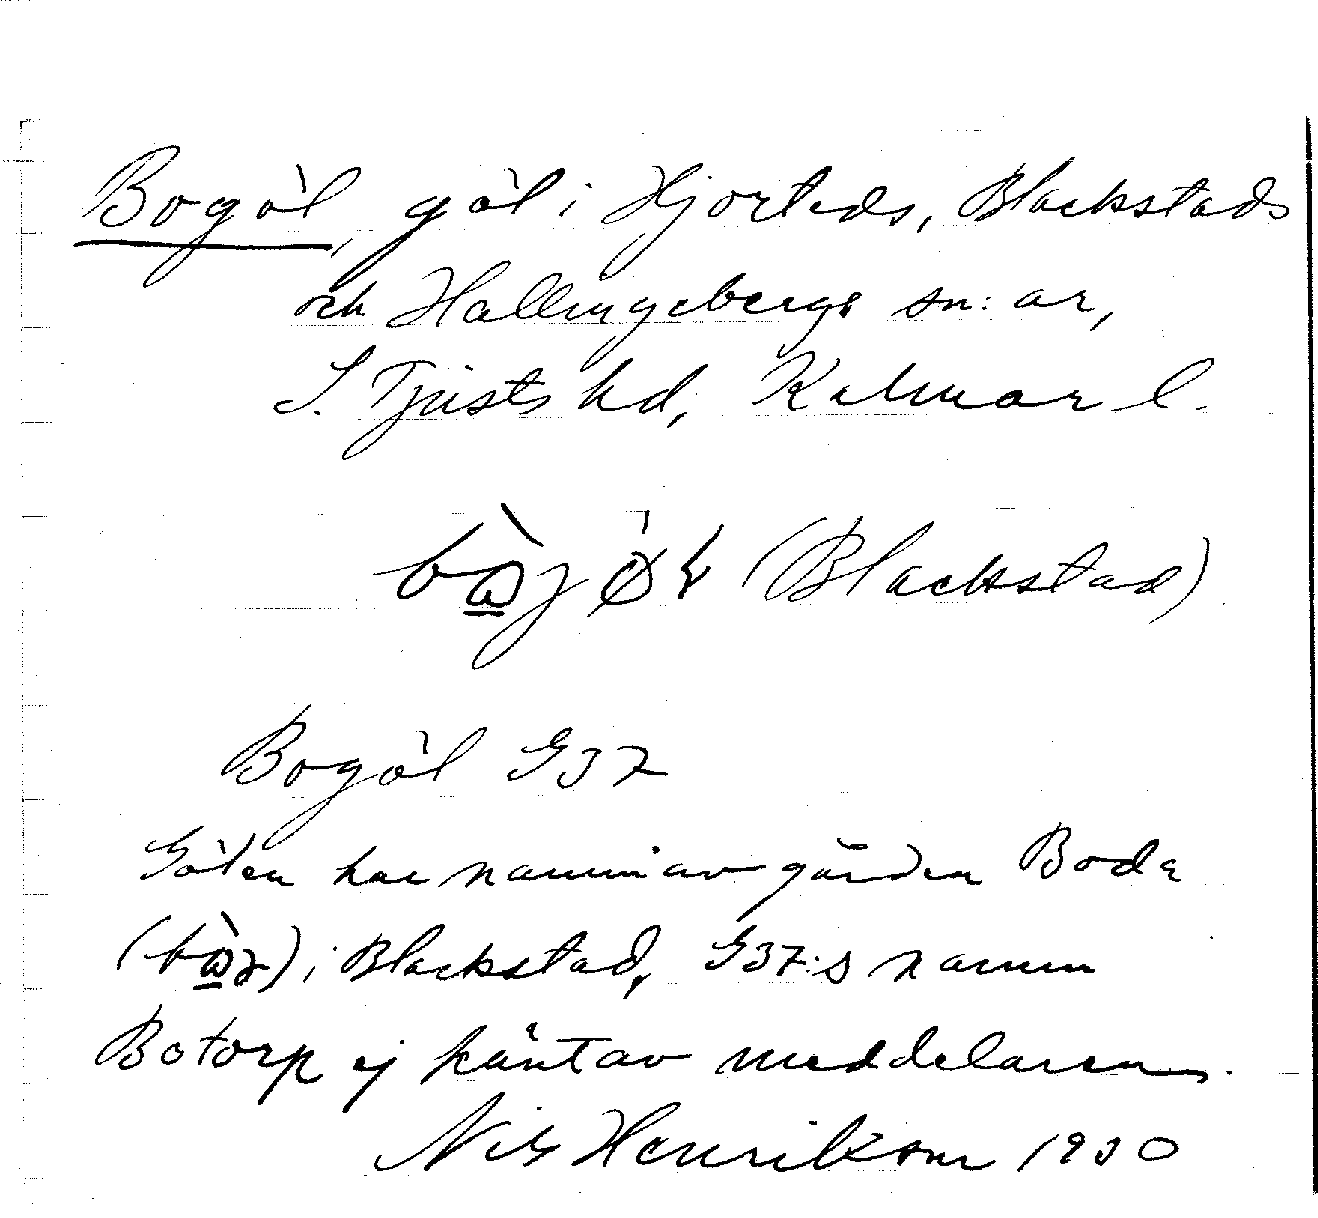 Bogöl, göl i Hjorteds, Blackstads
och Hallingebergs sn:ar,
S. Tjusts hd, Kalmar l.
(Blackstad)
Bogöl G37
Gölen har namn av gården Boda
i Blackstad, G37:s namn
Botorp ej känt av meddelaren.
Nils Henrikson 1930